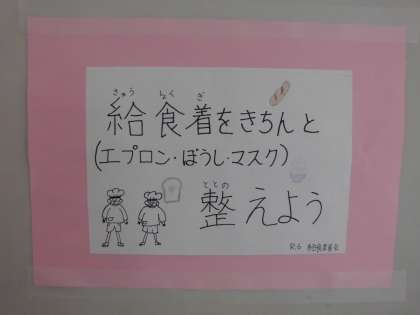 きゅう しょく ぎ
給食着をきちんと
(エプロン・ぼうし・マスク)
ととの
整えよう
R.6 給食委員会